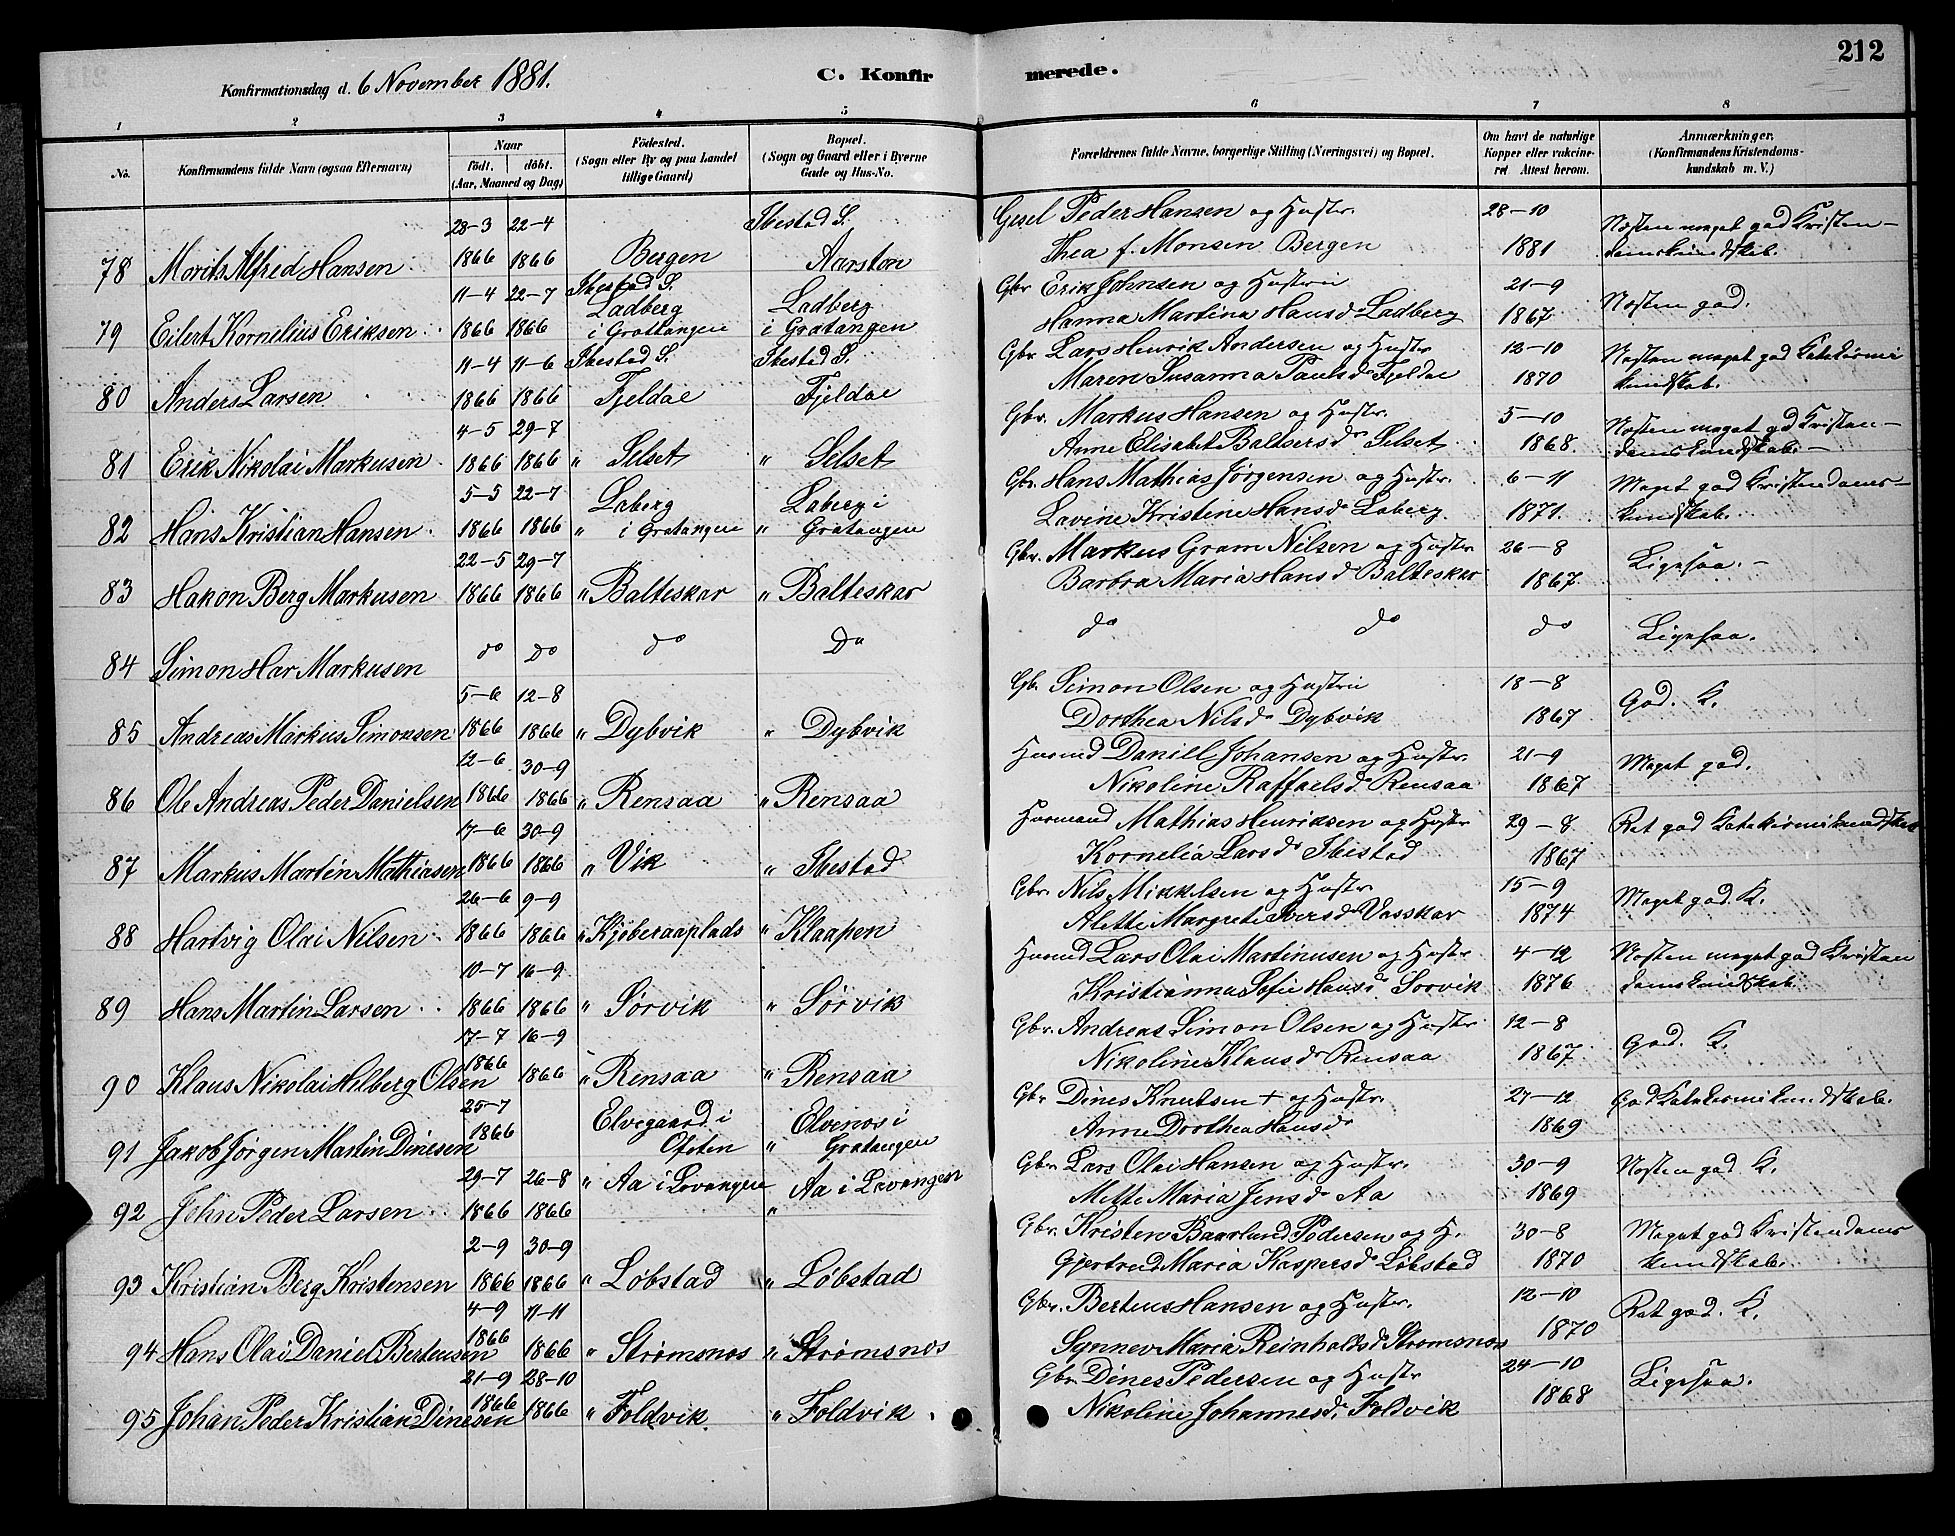 212
Konfirmationsdag d. 6 November 1881.
C. Konfirmerede.
1 2 3 4 5 6 7 8
No.
Konfirmandens fulde Navn (ogsaa Efternavn)
Naar
födt. döbt.
(Aar, Maaned og Dag)
Födested.
(Sogn eller By og paa Landet
tillige Gaard)
Bopæl.
(Sogn og Gaard eller i Byerne
Gade og Hus-No.
Forældrenes fulde Navne, borgerlige Stilling (Næringsvei) og Bopæl.
Om havt de naturlige
Kopper eller vakcine-
ret Attest herom.
Anmærkninger.
(Konfirmandens Kristendoms-
kundskab m. V.)
28-3 22-4 Ibestad S. Gesel Peder Hansen og Hustr. 28-10 Næsten meget god Kristen-
78 Morits Alfred Hansen 1866 1866 Bergen Aarston Thea f. Monsen Bergen 1881 domskundskab.
11-4 22-7 Ibestad S. Gbr Erik Johnsen og Hustru 21-9 Næsten god.
Ladberg Ladberg
79 Eilert Kornelius Eriksen 1866 1866 i Grattangen i Gratangen Hanna Martina Hansd. Ladberg 1867
11-4 11-6 Ibestad S. Ibestad S. Gbr Lars Henrik Andersen og Hustr 12-10 Næsten meget god Katekismi
80 Anders Larsen 1866 1866 Fjeldae Fjeldae Maren Susanna Paulsd Fjeldae 1870 kundskab.
4-5 29-7 Gbr. Markus Hansen og Hustr. 5-10 Næsten meget god Kristen-
81 Erik Nikolai Markusen 1866 1866 " Selset " Selset Anne Elisabet Baltsersdr Selset 1868. domskundskab. -
5-5 22-7 Laberg Laberg i Gbr. Hans Mathias Jørgensen og Hustr. 6-11 Meget god Kristendoms-
82 Hans Kristian Hansen 1866 1866 " i Gratangen " Gratangen Lavine Kristine Hansdr Laberg 1871. kundskab.
22-5 29-7 Gbr. Markus Gram Nilsen og Hustr 26-8 Ligesaa. -
83 Hakon Berg Markusen 1866 1866 " Balteskar " Balteskar Barbra Maria Hansd Balteskar 1867
do do do Do do do do Ligesaa.
84 Simon Har Markusen
5-6 12-8 Gbr Simon Olsen og Hustru 18-8 God. K.
85 Andreas Markus Simonsen 1866 1866 " Dybvik " Dybvik Dorthea Nilsdr Dybvik 1867
12-6 30-9 Husmd Daniell Johansen og Hustr. 21-9 Meget god.
86 Ole Andreas Peder Danielsen 1866 1866 " Rensaa " Rensaa Nikoline Raffaelsd. Rensaa 1867
17-6 30-9 Husmand Mathias Henriksen og Hustr 29-8 Ret god Katekismikundskab
87 Markus Martin Mathiasen 1866 1866 " Vik " Ibestad Kornelia Larsdr Ibestad 1867
26-6 9-9 Gbr. Nils Mikkelsen og Hustr. 15-9 Meget god. K.
88 Hartvig Olai Nilsen 1866 1866 " Kjøberaaplads " Klaapen Alette Margrete Iversdr Vasskar 1874
10-7 16-9 Husmd Lars Olai Martinusen og Hustr. 4-12 Næsten meget god Kristen
89 Hans Martin Larsen 1866 1866 " Sørvik " Sørvik Kristianna Sofie Hansd. Sorvik 1876 domskundskab.
17-7 16-9 Gbr. Andreas Simon Olsen og Hustr 12-8 God. K.
90 Klaus Nikolai Helberg Olsen 1866 1866 " Rensaa " Rensaa Nikoline Klausdr Rensaa 1867
25-7 Elvegaard i Elvenes i Gbr Dines Knutsen + og Hustr. 27-12 God Katekismikundskab.
91 Jakob Jørgen Martin Dinesen 1866 Ofoten " Gratangen Anne Dorthea Hansdr 1869
29-7 26-8 " Aa i Lavangen Aa i Lavangen Gbr. Lars Olai Hansen og Hustr. 30-9 Næsten god. K.
92 John Peder Larsen 1866 1866 " Mette Maria Jensdr Aa 1869
2-9 30-9 Gbr. Kristen Baarlund Pedersen og H. 30-8 Meget god Kristendoms
93 Kristian Berg Kristensen 1866 1866 " Løbstad " Løbstad Gjertrud Maria Kaspersdr Løbstad 1870 kundskab.
4-9 11-11 Gbr. Berteus Hansen og Hustr. 12-10 Ret god. K.
94 Hans Olai Daniel Berteusen 1866 1866 " Strømsnes " Strømsnes Synnev Maria Reinholdsd. Strømsnes 1870
21-9 28-10 Gbr. Dines Pedersen og Hustr 24-10 Ligesaa.
95 Johan Peder Kristian Dinesen 1866 1866 " Foldvik " Foldvik Nikoline Johannesd. Foldvik 1868